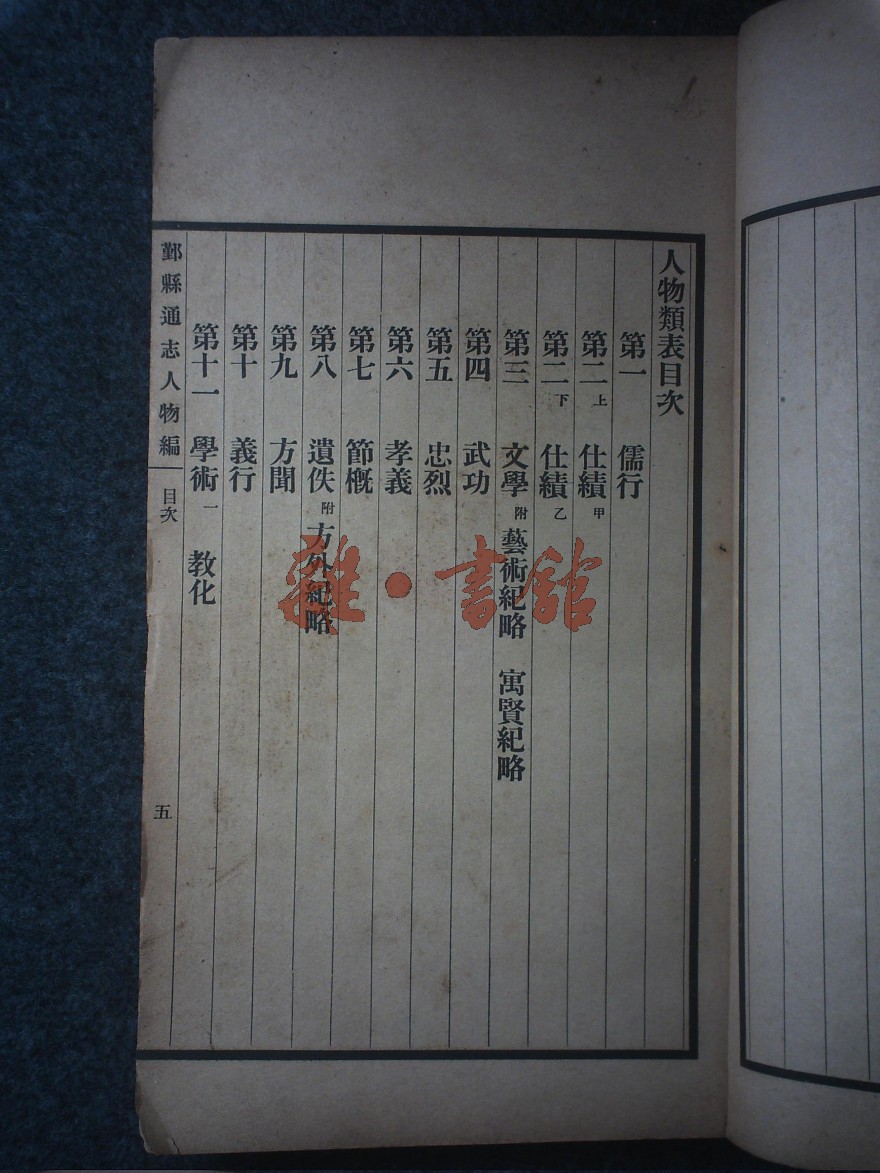 人物類表目次
第一 儒行
第二上 仕績甲
第二下 仕績乙
第三 文學附藝術紀略 寓賢紀略
第四 武功
第五 忠烈
第六 孝義
第七 節概
第八 遺佚附方外紀略
第九 方聞
第十 義行
第十一 學術一 教化
鄞縣通志人物編 目次 五
雜·書館